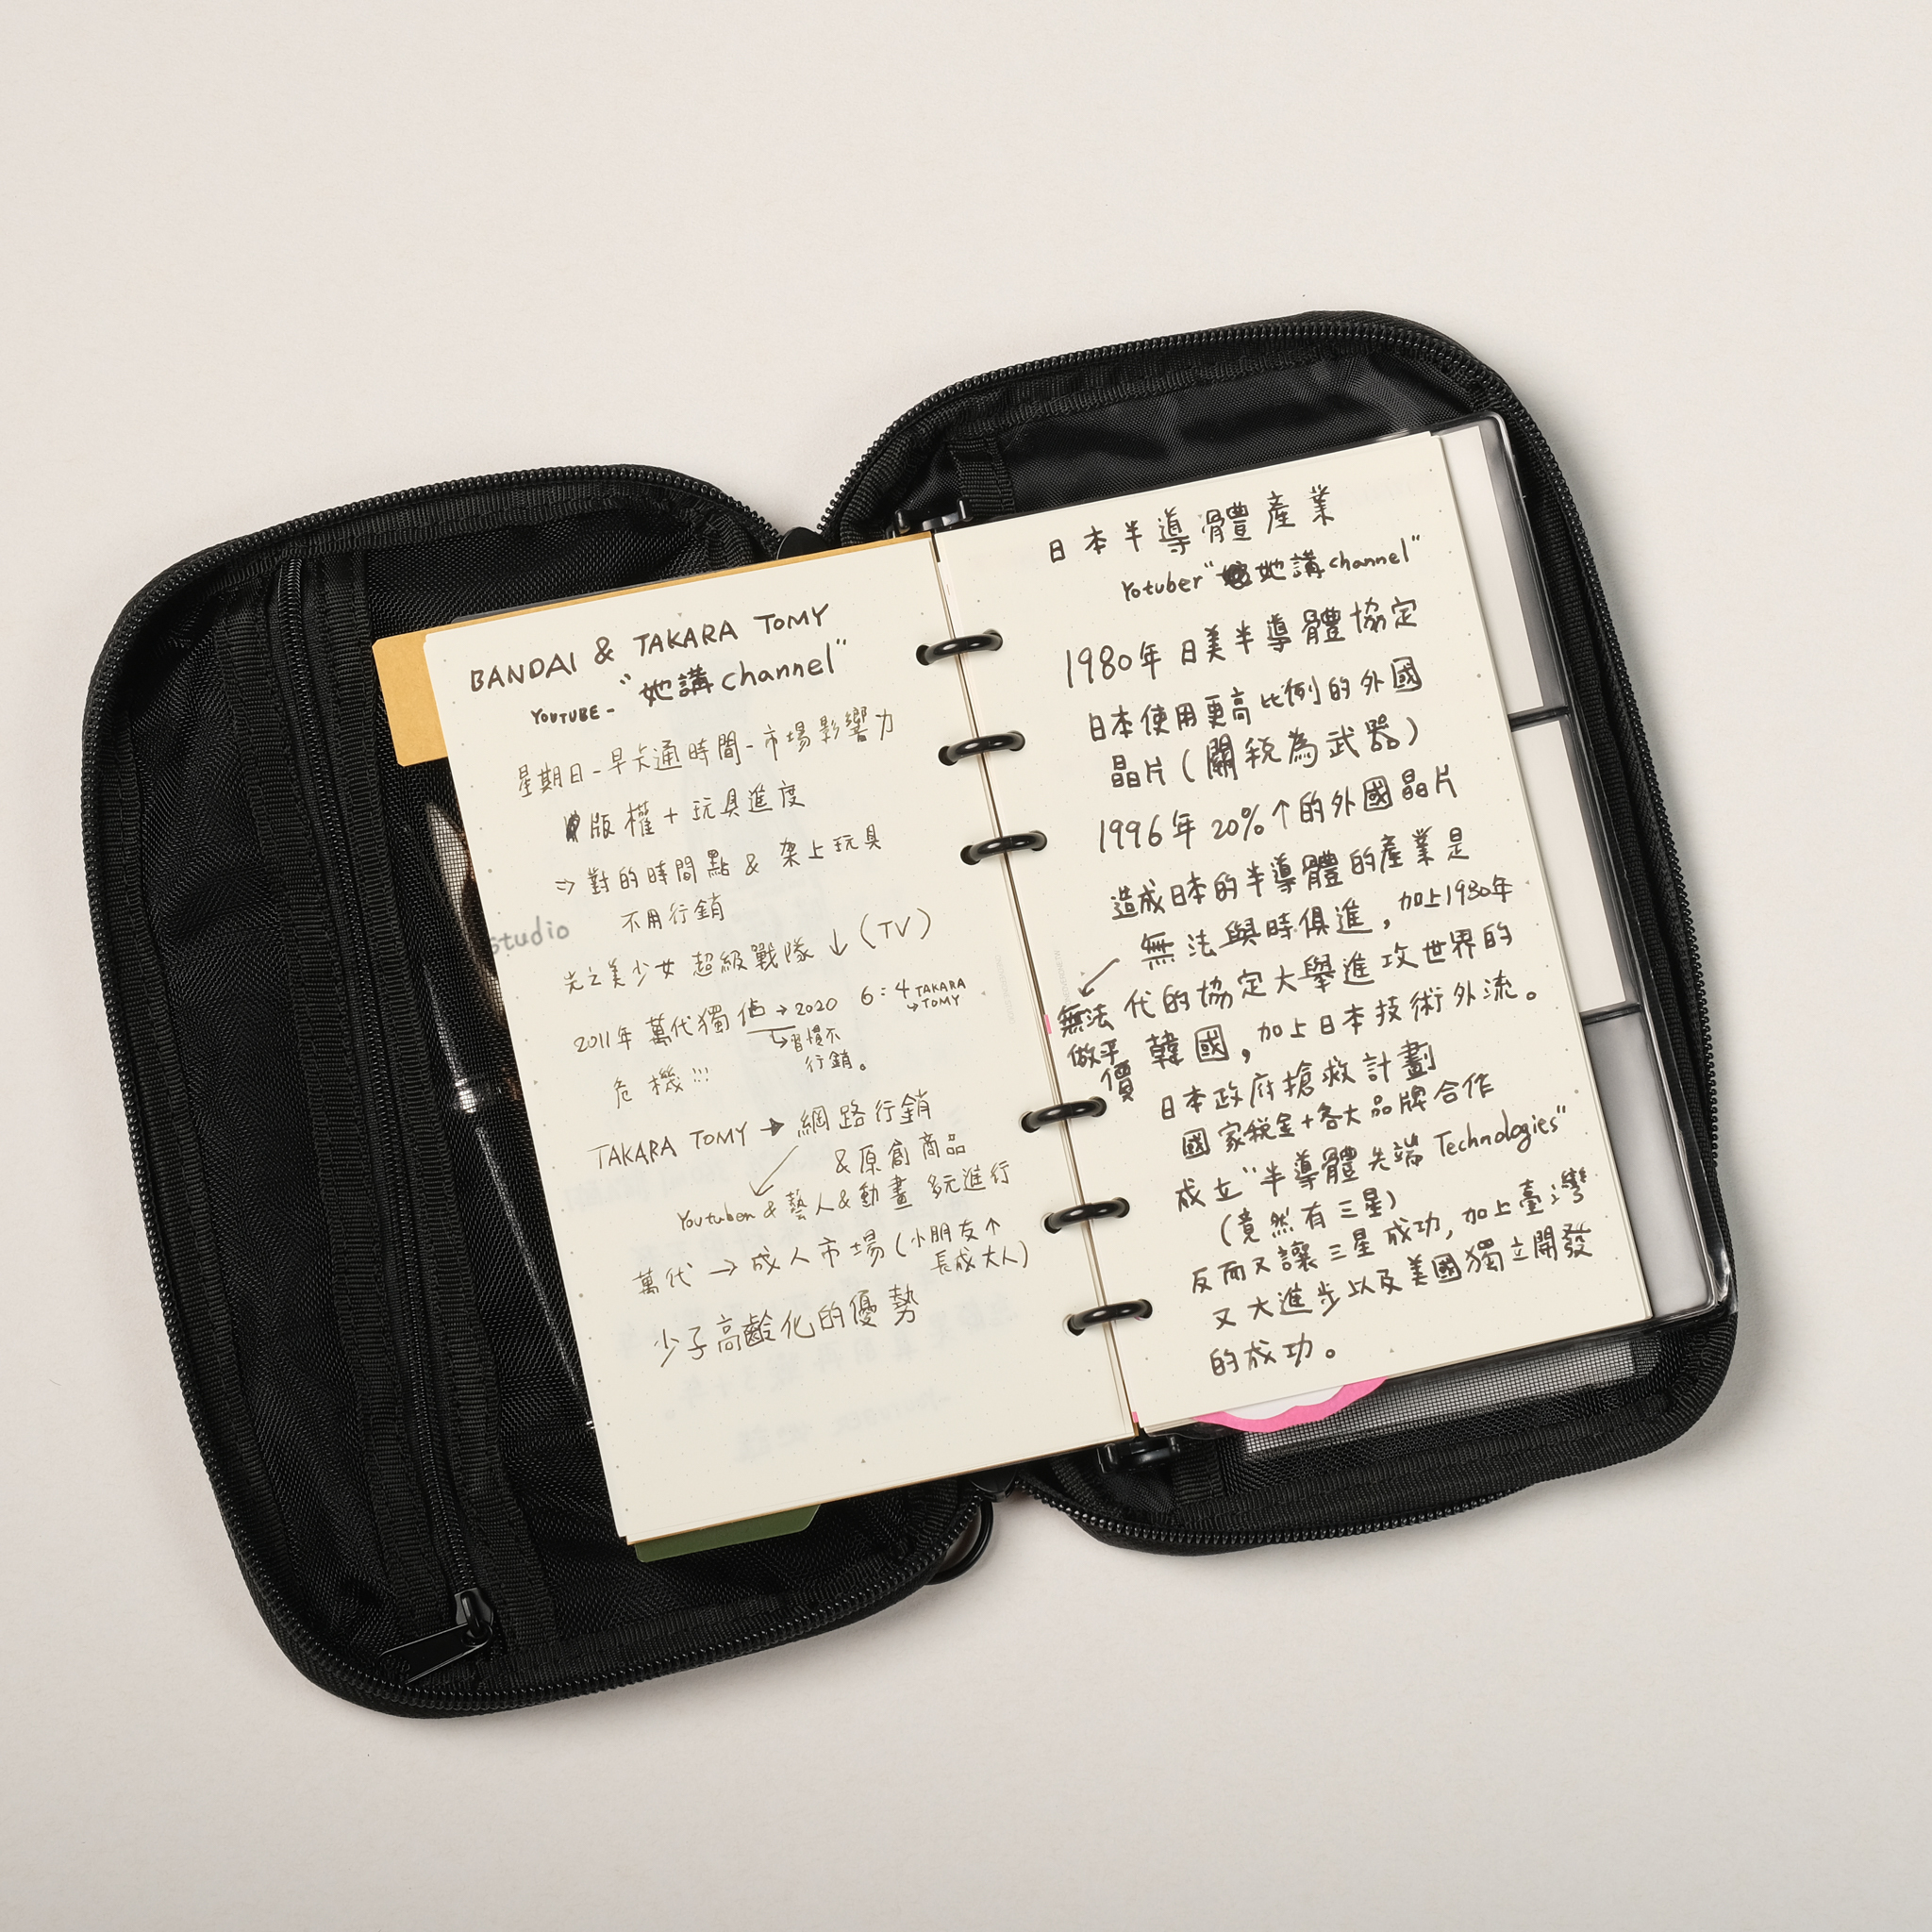 BANDAI & TAKARA TOMY
YOUTUBE - "她講channel"
星期日-早卡通時間-市場影響力
版權+玩具進度
⇒對的時間點 & 架上玩具
不用行銷
光之美少女 超級戰隊↓(TV)
2011年 萬代獨佔→2020 6:4 TAKARA
↳TOMY
↳習慣不
行銷。
危機!!!
TAKARA TOMY → 網路行銷
&原創商品
Youtuber & 藝人&動畫 多元進行
萬代→成人市場(小朋友↑
長成大人)
少子高齡化的優勢
studio
日本半導體產業
Yotuber"她講channel"
1980年日美半導體協定
日本使用更高比例的外國
晶片(關稅為武器)
1996年20%↑的外國晶片
造成日本的半導體的產業是
無法與時俱進,加上1980年
代的協定大舉進攻世界的
無法
做平
價
韓國,加上日本技術外流。
日本政府搶救計劃
國家稅金+各大品牌合作
成立"半導體先端Technologies"
(竟然有三星)
反而又讓三星成功,加上臺灣
又大進步以及美國獨立開發
的成功。